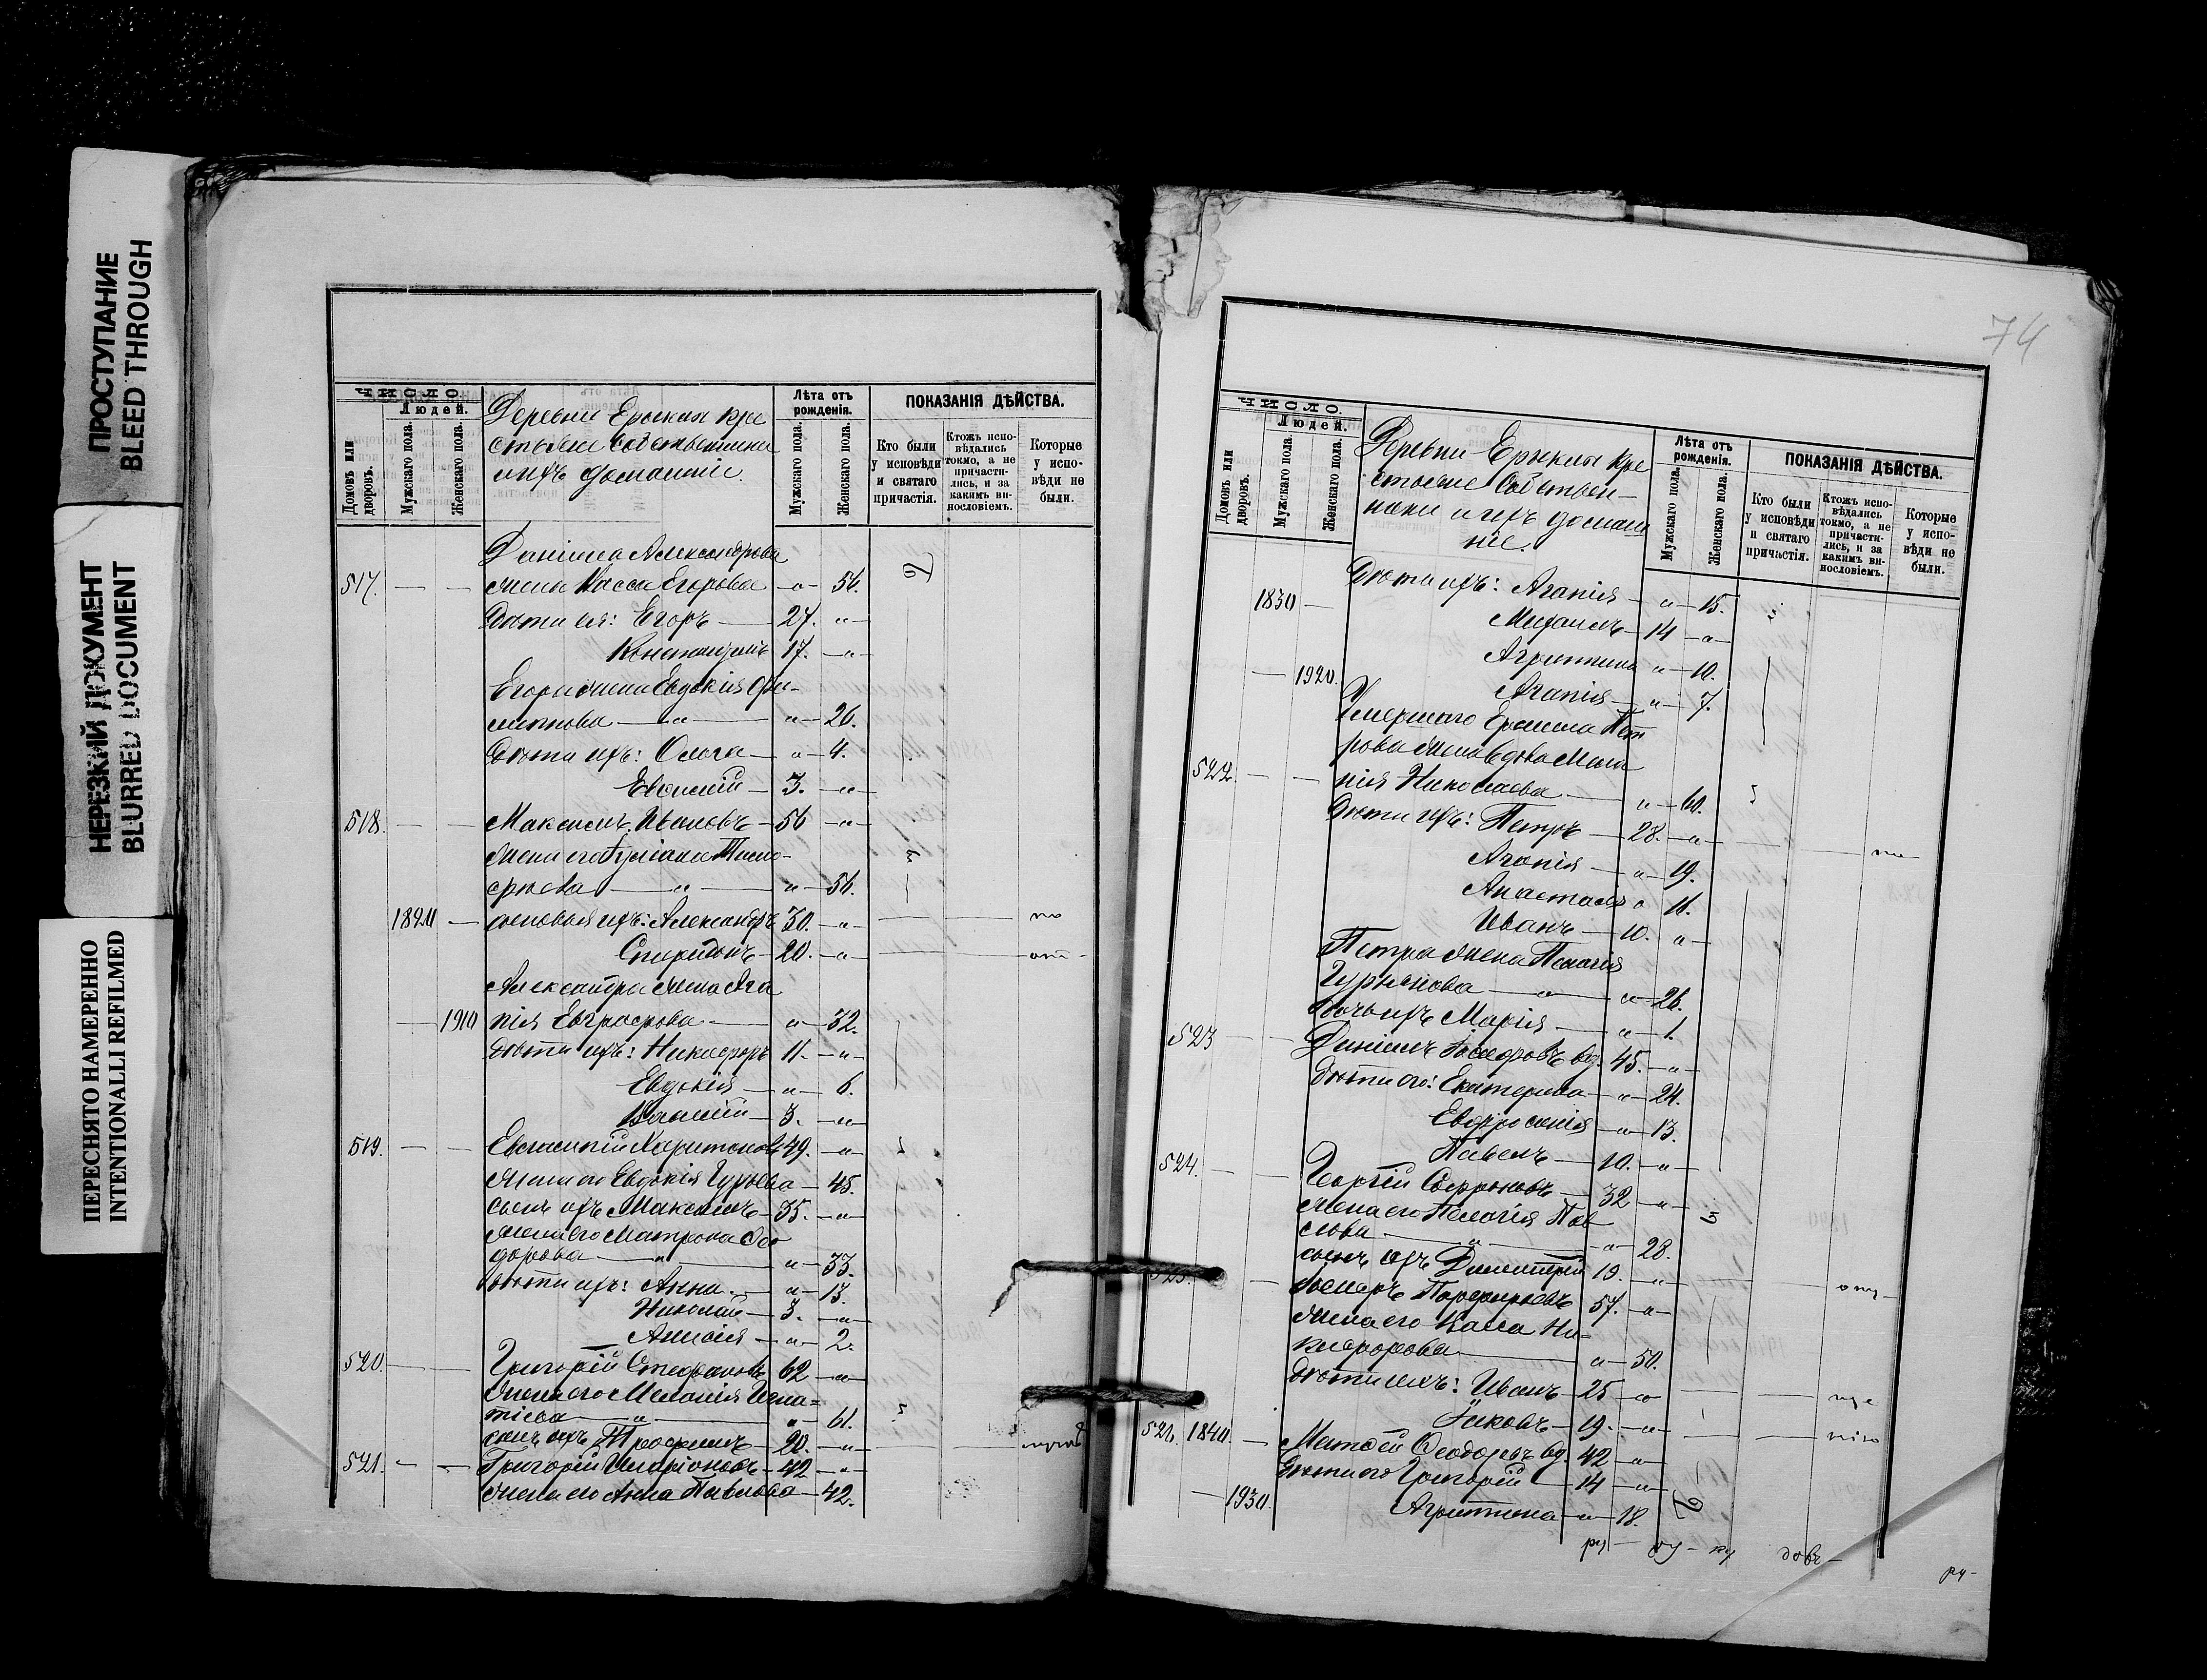 ПРОСТУПАНИЕ
BLEED THROUGH
НЕРЕЗКИЙ ДОКУМЕНТ
BLURRED DOCUMENT
ПЕРЕСНЯТО НАМЕРЕННО
INTENTIONALLI REFILMED
ЧИСЛО.
Людей.
Домовъ или дворовъ.
Мужскаго пола.
Женскаго пола.
Деревни Ерыкла кре
стьяне собственники
и ихъ домашніе.
Лѣта отъ рожденія.
Мужскаго пола.
Женскаго пола.
ПОКАЗАНІЯ ДѢЙСТВА.
Кто были у исповѣди и святаго причастія.
Ктожъ испо-вѣдались токмо, а не причасти-лись, и за какимъ ви-нословіемъ.
Которые у испо-вѣди не были.
Даніила Александрова
517. — — жена Васса Егорова — „ — 56.
Дѣти ея: Егоръ — 27. „ —
Константинъ 17. — „ —
Егора жена Евдокія Фи-
липпова — „ — „ — 26.
Дѣти ихъ: Ольга — „ — 4.
Евгеній — 3. — „ —
518. — — Максимъ Ивановъ — 56 — „ —
жена его Іуліана Тимо-
фѣева — „ — „ — 56.
1820 — сыновья ихъ: Александръ 30. — „ —
Спиридонъ — 20. — „ —
Александра жена Ага
— 1910 пія Евграфова — „ — 32.
Дѣти ихъ: Никифоръ 11. — „ —
Евдокія — „ — 6.
Василій — 3. — „ —
519. — — Евстафій Харитоновъ 49. — „ —
жена его Евдокія Гурьева — 45.
сынъ ихъ Максимъ — 35. — „ —
жена его Матрона Ѳео
дорова — „ — „ — 33.
Дѣти ихъ: Анна — „ — 13.
Николай — 3. — „ —
Анисія — „ — 2.
520. — — Григорій Стефановъ 62 — „ —
жена его Меланія Игна=
тіева — „ — „ — 61.
сынъ ихъ Трофимъ — 20. — „ —
521. — — Григорій Иларіоновъ — 42 — „ —
жена его Анна Павлова — 42.
74
ЧИСЛО.
Людей.
Домовъ или дворовъ.
Мужскаго пола.
Женскаго пола.
Деревни Ерыкла кре
стьяне собствен-
ники и ихъ домаш
ніе.
Лѣта отъ рожденія.
Мужскаго пола.
Женскаго пола.
ПОКАЗАНІЯ ДѢЙСТВА.
Кто были у исповѣди и святаго причастія.
Ктожъ испо-вѣдались токмо, а не причасти-лись, и за какимъ ви-нословіемъ.
Которые у испо-вѣди не были.
1830 — Дѣти ихъ: Агапія — „ — 15.
Михаилъ — 14 — „ —
Агриппина „ — 10.
— 1920. Агапія — „ — 7.
Умершаго Ермила Пет
рова жена вдова Мела
522. — — нія Николаева — „ — 60.
Дѣти ихъ: Петръ — 28. — „ —
Агапія — „ — 19.
Анастасія „ 16.
Иванъ — 10. „ —
Петра жена Пелагія
Гурьянова — „ — „ — 26.
дочь ихъ Марія — „ — 1.
523 — — Даніилъ Іосифовъ вд. 45. — „ —
Дѣти его: Екатерина — „ — 24.
Евфросинія — „ — 13.
Павелъ — 10. — „ —
524. — — Георгій Софроновъ — 32 — „ —
жена его Пелагія Пав
лова — „ — „ — 28.
сынъ ихъ Димитрій 19. — „ —
525. — Іосифъ Порфирьевъ 57. — „ —
жена его Васса Ни-
кифорова — „ — 50.
Дѣти ихъ: Иванъ — 25 — „
Яковъ — 19. — „ —
526. 1840. — Матѳей Ѳеодоровъ вд. 42 — „ —
Дѣти его Григорій — 14 — „ —
— 1930. Агриппина — „ — 18.